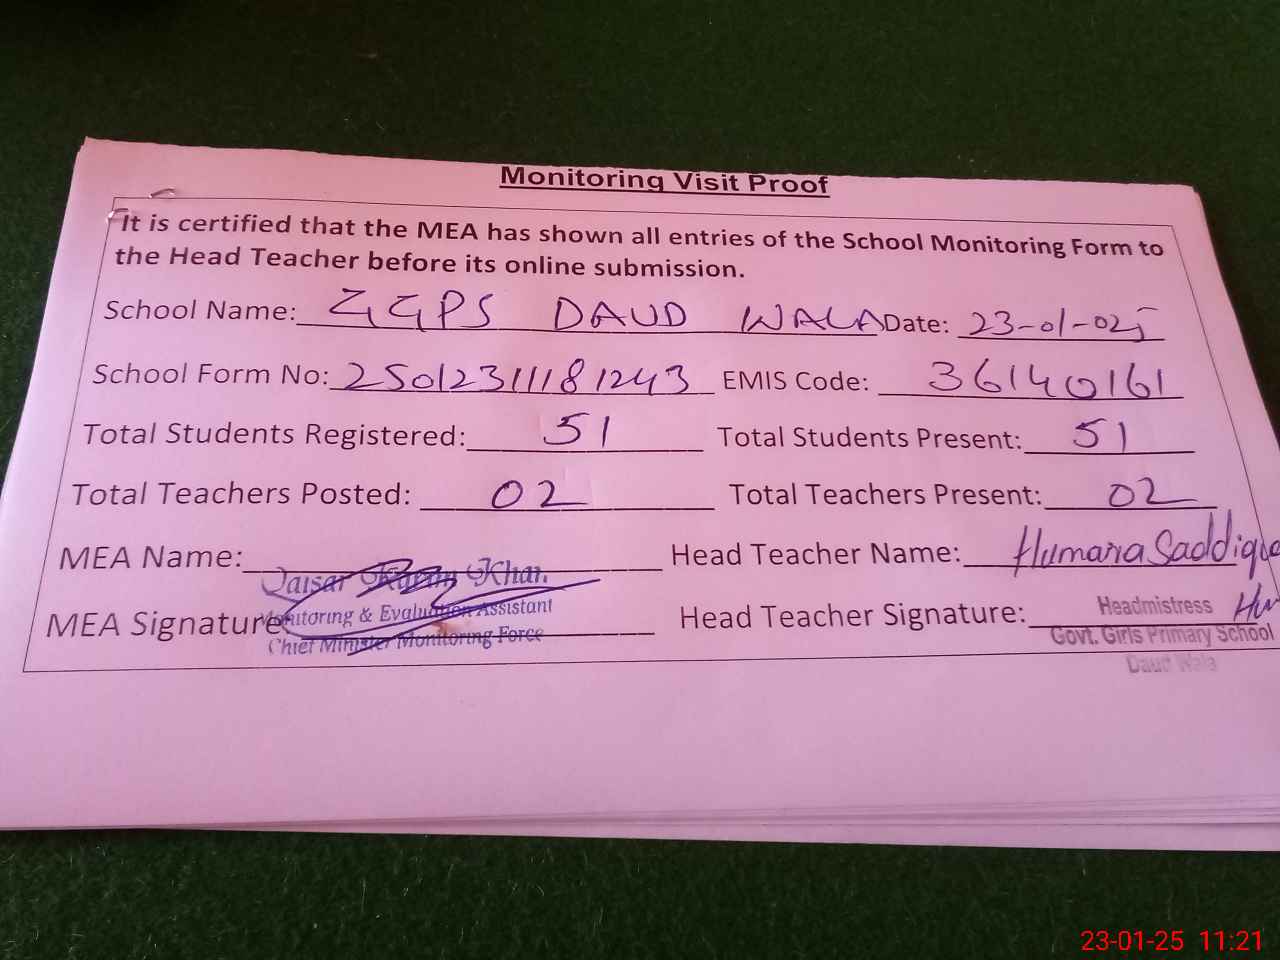 Monitoring Visit Proof
It is certified that the MEA has shown all entries of the School Monitoring Form to
the Head Teacher before its online submission.
School Name: GGPS DAUD WALA Date: 23-01-025
School Form No: 250123111181243 EMIS Code: 36140161
Total Students Registered: 51 Total Students Present: 51
Total Teachers Posted: 02 Total Teachers Present: 02
MEA Name: Qaisar Khan Head Teacher Name: Humaria Saddiqia
MEA Signature Head Teacher Signature:
Monitoring & Evaluation Assistant
Chief Minister Monitoring Force
Headmistress
Govt. Girls Primary School
Daud Wala
23-01-25 11:21